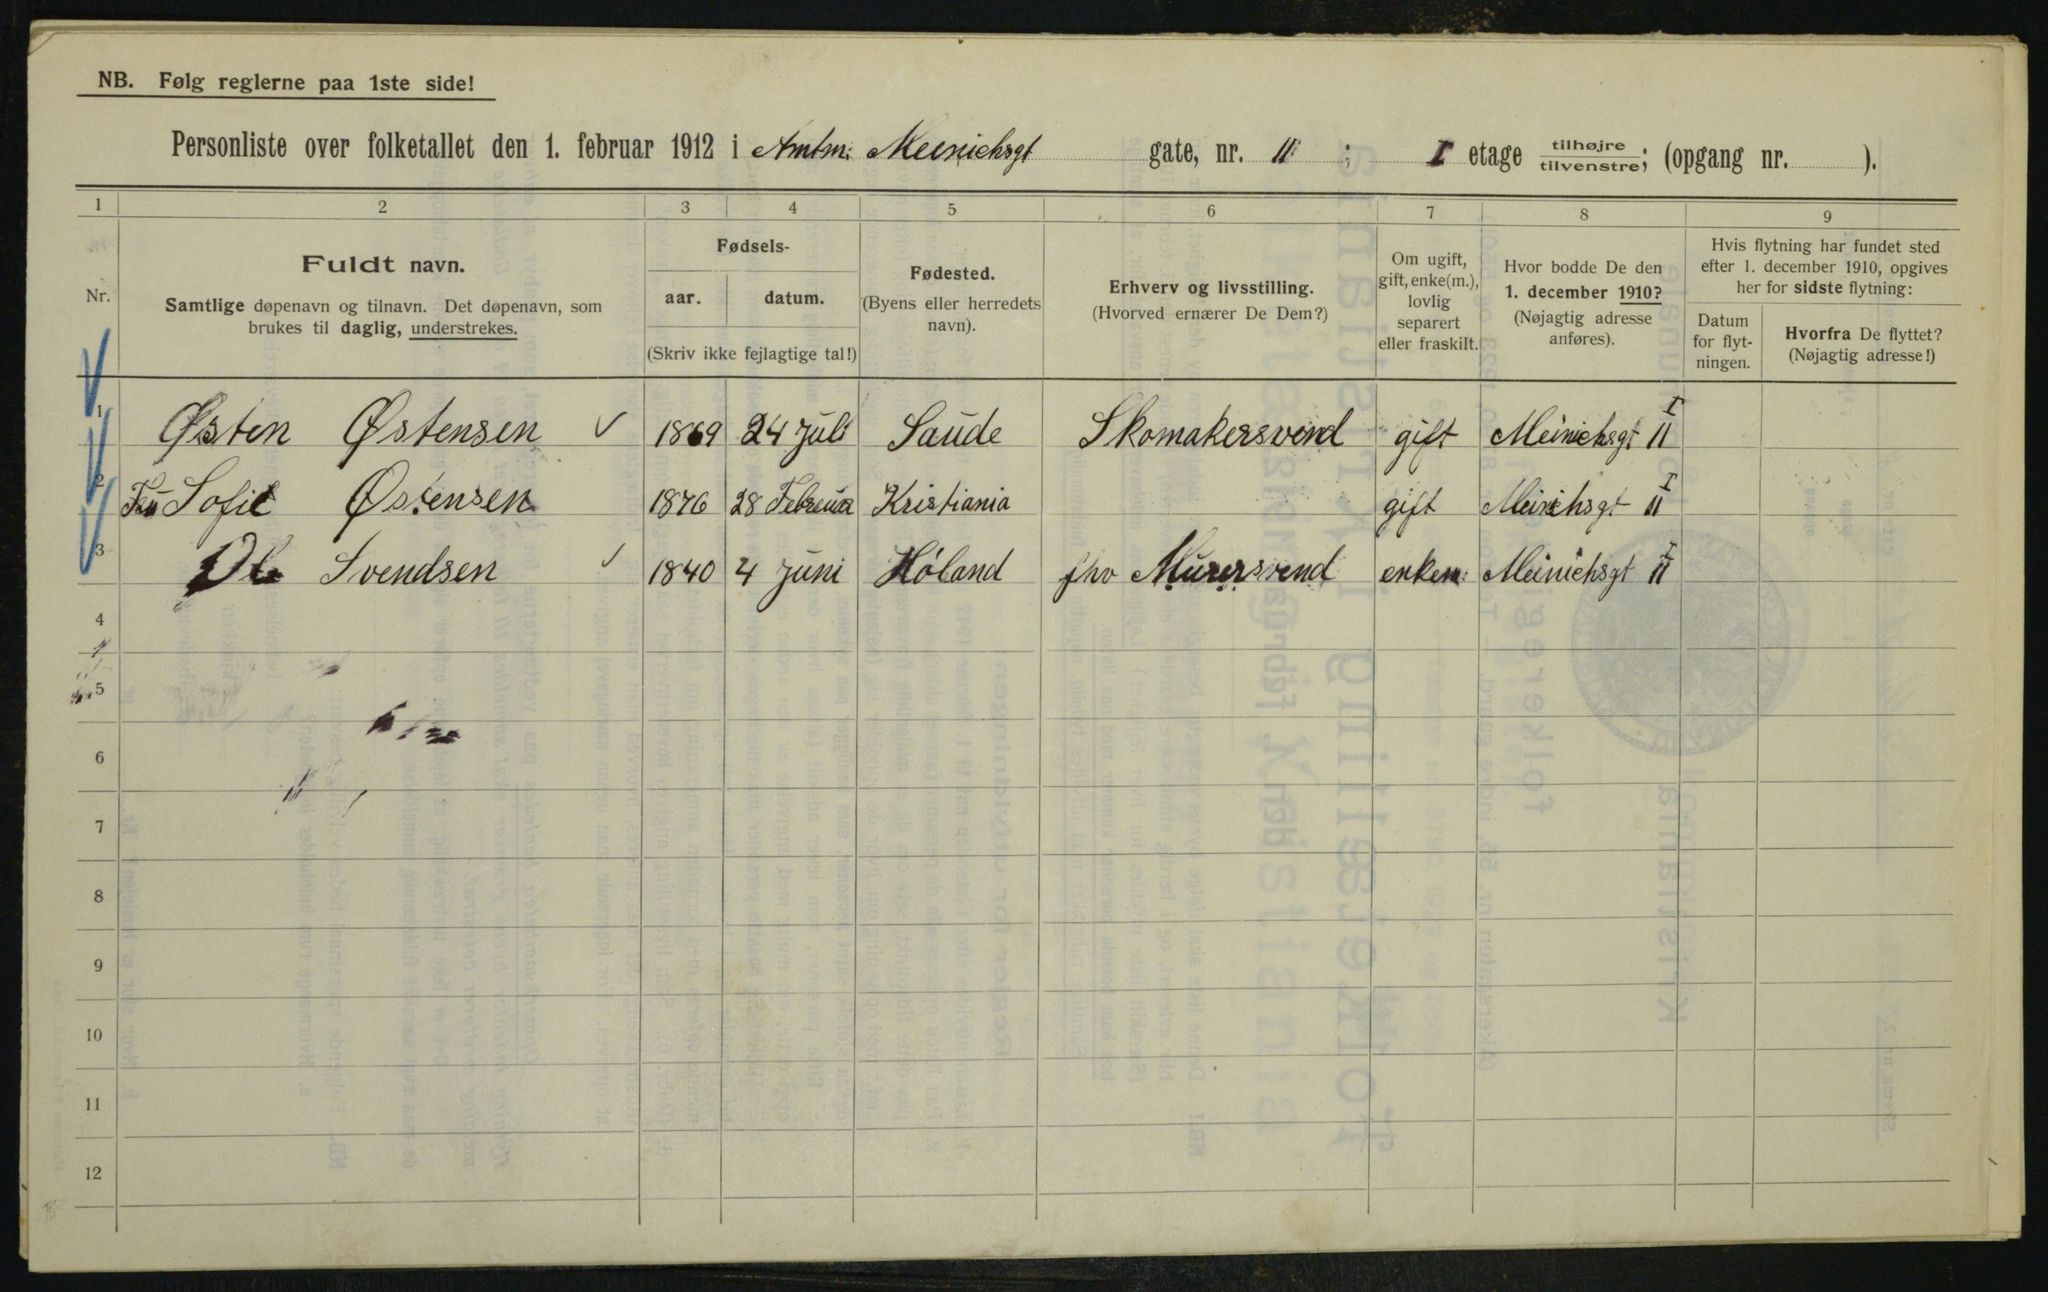 NB. Følg reglerne paa 1ste side!
Personliste over folketallet den 1. februar 1912 i Amtm: Meinichsgt gate, nr. 11 ; I etage tilhøjre tilvenstre; (opgang nr. ).
1 2 3 4 5 6 7 8 9
Nr.
Fuldt navn.
Samtlige døpenavn og tilnavn. Det døpenavn, som
brukes til daglig, understrekes.
Fødsels-
aar. datum.
(Skriv ikke fejlagtige tal!)
Fødested.
(Byens eller herredets
navn).
Erhverv og livsstilling.
(Hvorved ernærer De Dem?)
Om ugift,
gift, enke(m.),
lovlig
separert
eller fraskilt.
Hvor bodde De den
1. december 1910?
(Nøjagtig adresse
anføres).
Hvis flytning har fundet sted
efter 1. december 1910, opgives
her for sidste flytning:
Datum
for flyt-
ningen.
Hvorfra De flyttet?
(Nøjagtig adresse!)
1 Østen Østensen 1869 24 juli Saude Skomakersvend gift Meinichsgt 11 I
2 Sofie Østensen 1876 28 Februar Kristiania gift Meinichsgt 11 I
3 Ole Svendsen 1840 4 juni Høland fhv Murersvend enkem: Meinichsgt 11 I
4
5
6
7
8
9
10
11
12